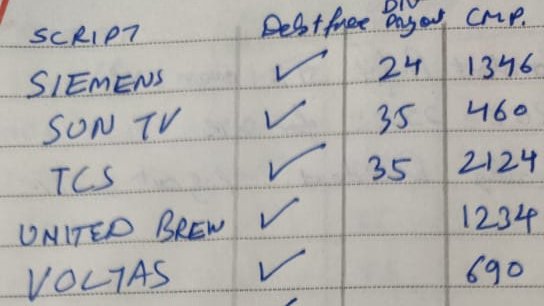 SCRIPT Debtfree DIV Payout CMP.
SIEMENS ✓ 24 1346
SUN TV ✓ 35 460
TCS ✓ 35 2124
UNITED BREW ✓ 1234
VOLTAS ✓ 690